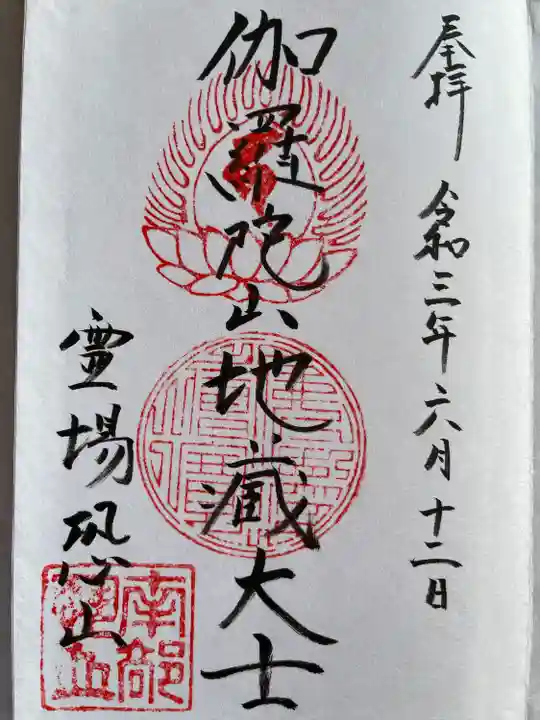 奉拝 令和三年六月十二日
伽羅陀山地蔵大士
霊場恐山
南部